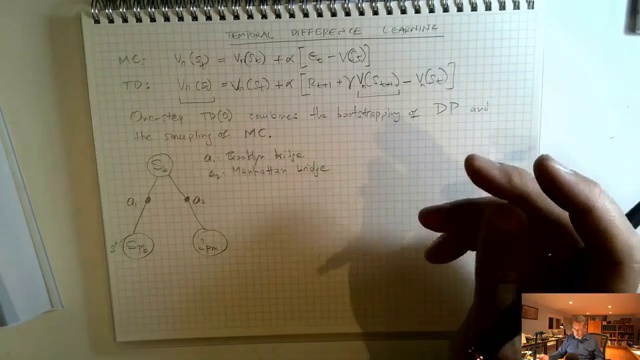 TEMPORAL DIFFERENCE LEARNING
MC: Vπ(St) = Vπ(St) + α [Gt − V(St)]
TD: Vπ(S) = Vπ(St) + α [Rt+1 + γ Vπ(St+1) − Vπ(St)]
One-step TD(0) combines the bootstrapping of DP and
the sampling of MC.
a1: Brooklyn bridge
a2: Manhattan bridge
Sb
a1 a2
s'